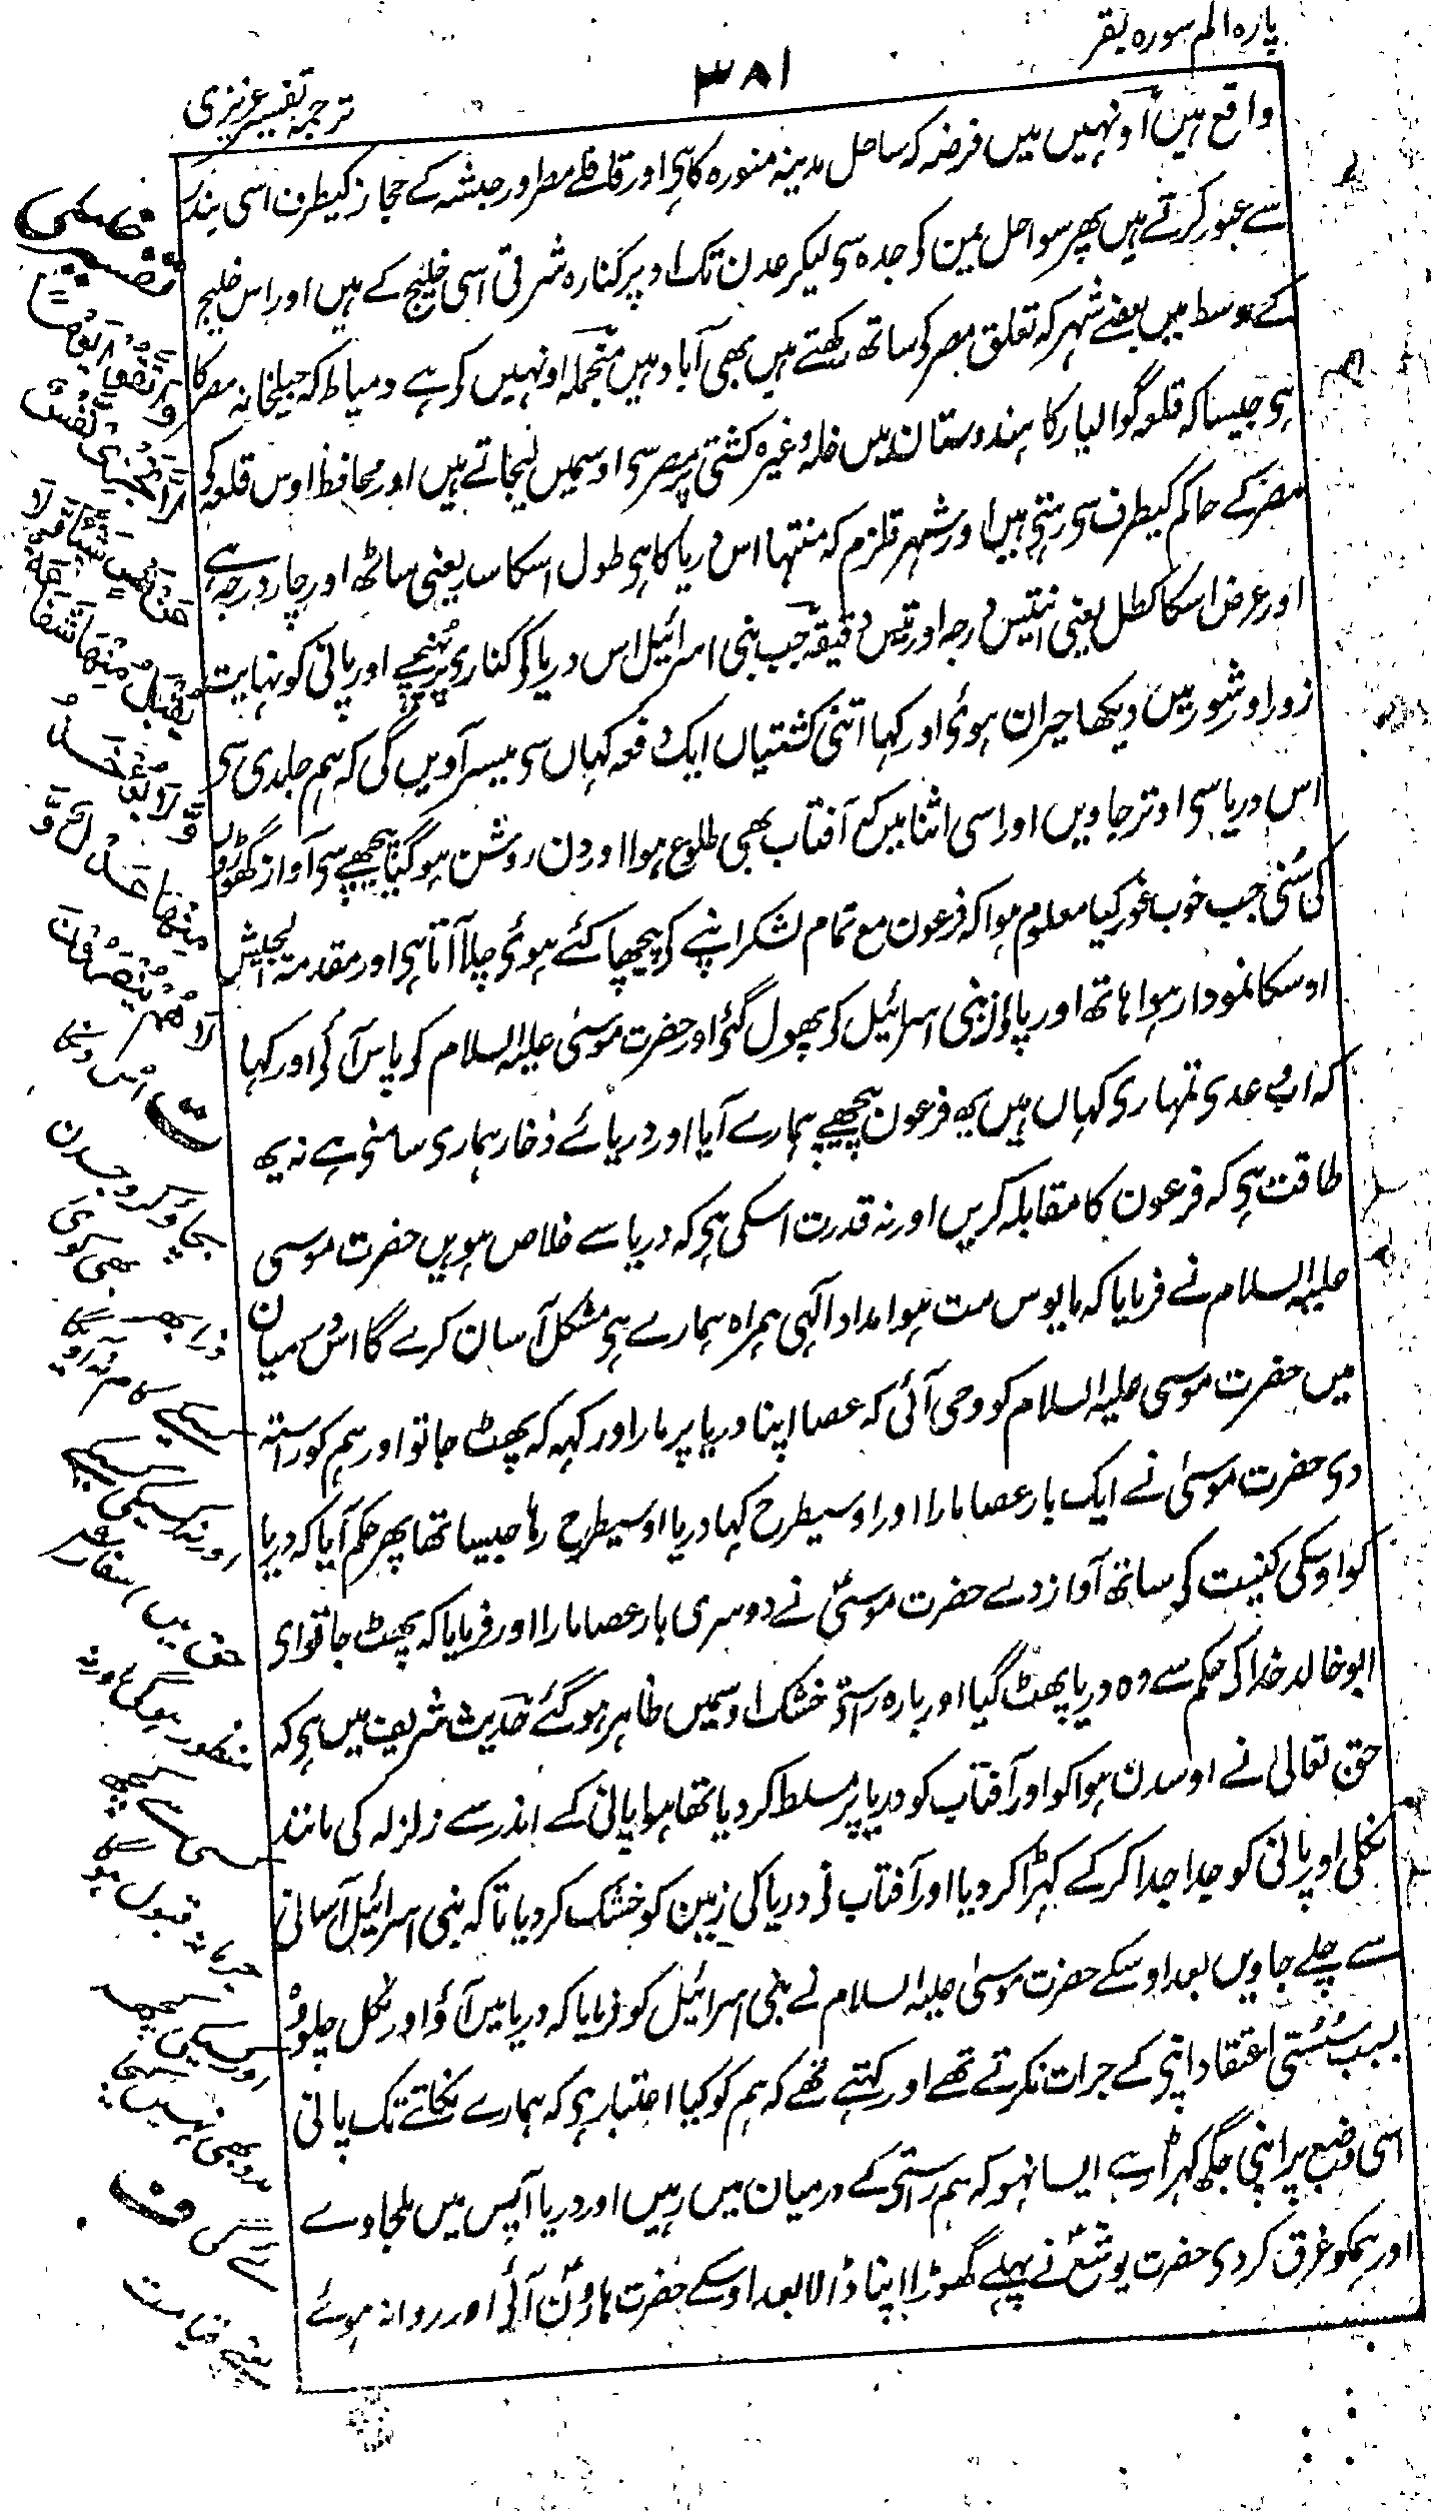 پارہ الم سورہ بقر
۳۸۱
ترجمہ تفسیر عزیزی
واقع ہیں اونہیں میں فرضہ کہ ساحل مدینہ منورہ کا ہی اور قافلے مصر اور حبشہ کے حجاز کیطرف اسی بندر
سے عبور کرتے ہیں پھر سواحل یمن کی جدہ سی لیکر عدن تک اوپر کنارہ شرقی اسی خلیج کے ہیں اور اس خلیج
کے وسط میں بعضے شہر کہ تعلق مصر کی ساتھ رکھتے ہیں بھی آباد ہیں منجملہ اونہیں کی ہے دمیاط کہ جیلخانہ مصر کا
ہی جیسا کہ قلعہ گوالیار کا ہندوستان میں غلہ وغیرہ کشتی پر مصر سی اوسمیں لیجاتے ہیں اور محافظ اوس قلعہ کی
مصر کے حاکم کیطرف سی رہتی ہیں اور شہر قلزم کہ منتہا اس دریا کا ہی طول اسکا سد یعنی ساٹھ اور چار درجہ ہے
اور عرض اسکا کطل یعنی انتیس درجہ اور تیس دقیقہ جب بنی اسرائیل اس دریا کی کناری پر پہنچے اور پانی کو نہایت
زور اور شور میں دیکھا حیران ہوئی اور کہا اتنی کشتیاں ایک دفعہ کہاں سی میسر آویں گی کہ ہم جلدی سی
اس دریا سی اوتر جاویں اور اسی اثنا میں کہ آفتاب بھی طلوع ہوا اور دن روشن ہو گیا پیچھے سی آواز گھوڑوں
کی سنی جب خوب غور کیا معلوم ہوا کہ فرعون مع تمام لشکر اپنے کی پیچھا کئے ہوئی چلا آتا ہی اور مقدمۃ الجیش
اوسکا نمودار ہوا ہاتھ اور پاؤں بنی اسرائیل کی پھول گئی اور حضرت موسیٰ علیہ السلام کی پاس آئی اور کہا
کہ اب وعدی تمہاری کہاں ہیں یہ فرعون پیچھے ہمارے آیا اور دریائے ذخار ہماری سامنی ہے نہ یہ
طاقت ہی کہ فرعون کا مقابلہ کریں اور نہ قدرت اسکی ہی کہ دریا سے خلاص ہویں حضرت موسی
علیہ السلام نے فرمایا کہ مایوس مت ہو امداد الٰہی ہمراہ ہمارے ہی مشکل آسان کرے گا اس درمیان
میں حضرت موسی علیہ السلام کو وحی آئی کہ عصا اپنا دریا پر مار اور کہہ کہ پھٹ جا تو اور ہم کو راستہ
دی حضرت موسیٰ نے ایک بار عصا مارا اور اوسیطرح کہا دریا اوسیطرح رہا جیسا تھا پھر حکم آیا کہ دریا
کو اوسکی کنیت کی ساتھ آواز دے حضرت موسیٰ نے دوسری بار عصا مارا اور فرمایا کہ پھٹ جا تو ای
ابو خالد خدا کی حکم سے وہ دریا پھٹ گیا اور بارہ رستی خشک اوسمیں ظاہر ہو گئے حدیث شریف میں ہی کہ
حق تعالیٰ نے اوسدن ہوا کو اور آفتاب کو دریا پر مسلط کر دیا تھا ہوا پانی کے اندر سے زلزلہ کی مانند
نکلی اور پانی کو جدا جدا کر کے کہڑا کر دیا اور آفتاب نی دریا کی زمین کو خشک کر دیا تا کہ بنی اسرائیل آسانی
سے چلے جاویں بعد اوسکے حضرت موسیٰ علیہ السلام نے بنی اسرائیل کو فرمایا کہ دریا میں آؤ اور نکل چلو وہ
بسبب سستی اعتقاد اپنی کے جرات نکرتے تھے اور کہتے تھے کہ ہم کو کیا اعتبار ہی کہ ہمارے نکلتے تک پانی
اسی وضع پر اپنی جگہ کہڑا رہے ایسا نہو کہ ہم رستی کے درمیان میں رہیں اور دریا آپس میں ملجاوے
اور ہمکو غرق کر دی حضرت یوشع نے پہلے گھوڑا اپنا ڈالا بعد اوسکے حضرت ہارون آئی اور روانہ ہوئے
وَاتَّقُوا يَوْمًا
لَّا تَجْزِي نَفْسٌ
عَن نَّفْسٍ شَيْئًا وَّلَا
يُقْبَلُ مِنْهَا شَفَاعَةٌ
وَّلَا يُؤْخَذُ
مِنْهَا عَدْلٌ وَّ
لَا هُمْ يُنْصَرُونَ
ت اس دن کا
بچاؤ کرو جسدن
بھی کوئی
ذرہ بھر
کسیکے کام نہ آویگا
اور نہ کسیکی کسیکے
حق میں سفارش
منظور ہوگی اور نہ
کسی سے کچھ
جرمانہ قبول ہوگا
اور کسیکی کچھ
مدد بھی نہیں
ف
یعنے قیامت